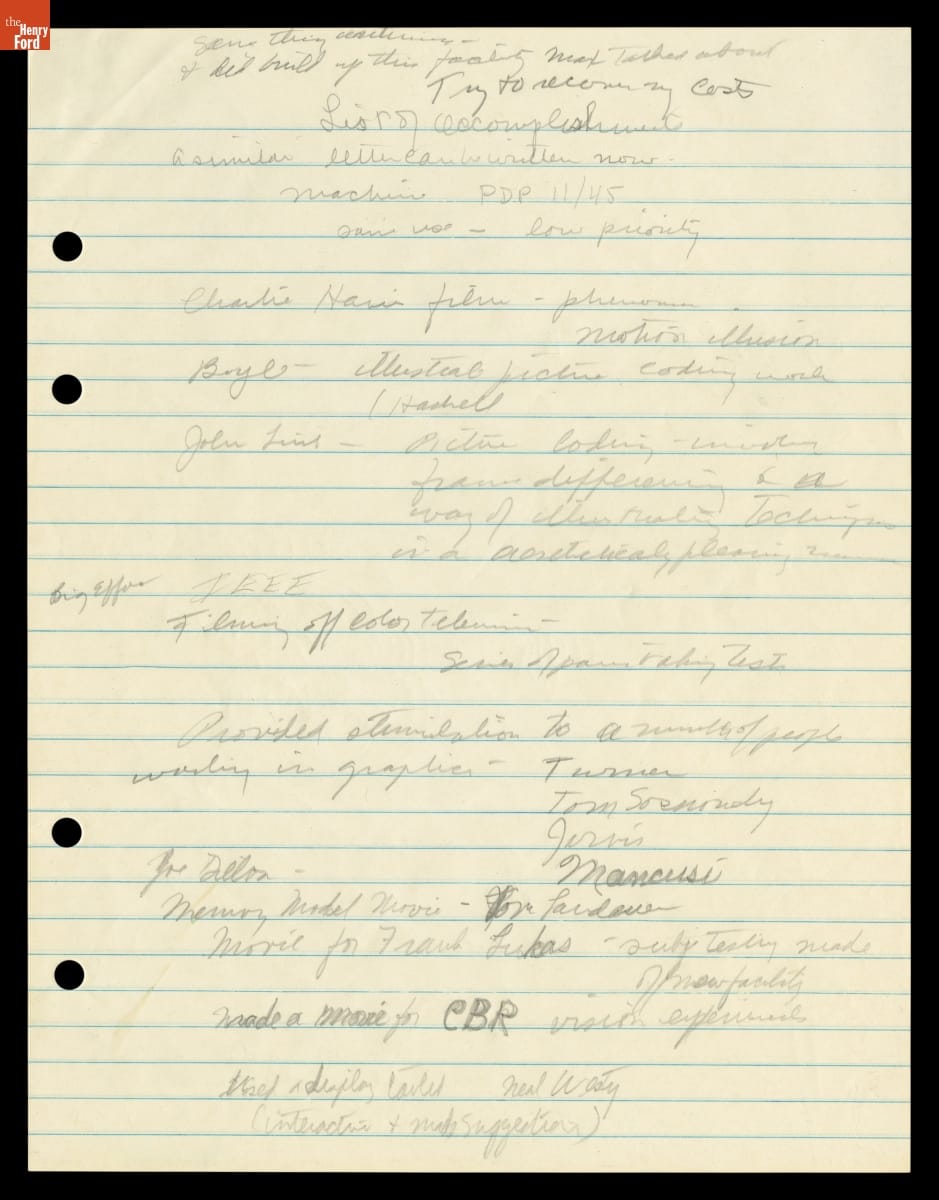 the Henry Ford
same thing
& did build up this facility Max talked about
Try to recover my costs
List of accomplishments
a similar letter can be written now.
machine PDP 11/45
same use - low priority
Charlie film - phenomena
motion illusion
Boyle - illustrate picture coding work
/ Haskell
John - Picture coding -
frame differencing & a
way of illustrating Techniques
in a aesthetically pleasing
Big Effort IEEE
Filming off color television
Series of painstaking tests
Provided stimulation to a number of people
working in graphics - Turner
Tom
Jervis
Joe Dillon - Mancusi
Memory Model Movie - Tom Landauer
Movie for Frank Lukas - testing made
of new facility
made a movie for CBR vision experiments
Used a display tablet Neal
(interactive + made suggestions)